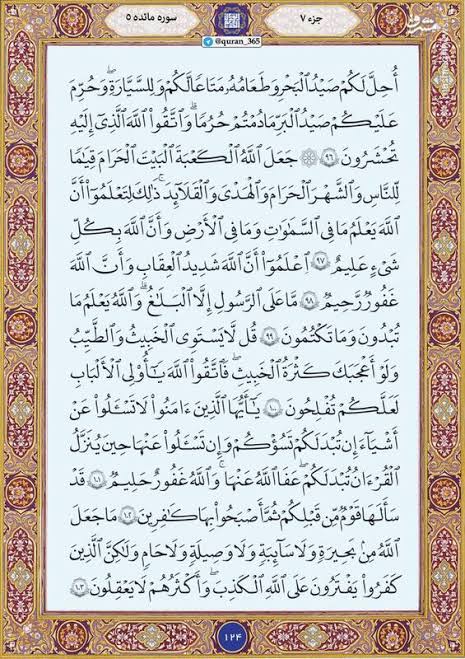 جزء ٧
سوره مائده ٥
@quran_365
أُحِلَّ لَكُمْ صَيْدُ ٱلْبَحْرِ وَطَعَامُهُۥ مَتَٰعًا لَّكُمْ وَلِلسَّيَّارَةِ ۖ وَحُرِّمَ
عَلَيْكُمْ صَيْدُ ٱلْبَرِّ مَا دُمْتُمْ حُرُمًا ۗ وَٱتَّقُوا۟ ٱللَّهَ ٱلَّذِىٓ إِلَيْهِ
تُحْشَرُونَ ٩٦ ۞ جَعَلَ ٱللَّهُ ٱلْكَعْبَةَ ٱلْبَيْتَ ٱلْحَرَامَ قِيَٰمًا
لِّلنَّاسِ وَٱلشَّهْرَ ٱلْحَرَامَ وَٱلْهَدْىَ وَٱلْقَلَٰٓئِدَ ۚ ذَٰلِكَ لِتَعْلَمُوٓا۟ أَنَّ
ٱللَّهَ يَعْلَمُ مَا فِى ٱلسَّمَٰوَٰتِ وَمَا فِى ٱلْأَرْضِ وَأَنَّ ٱللَّهَ بِكُلِّ
شَىْءٍ عَلِيمٌ ٩٧ ٱعْلَمُوٓا۟ أَنَّ ٱللَّهَ شَدِيدُ ٱلْعِقَابِ وَأَنَّ ٱللَّهَ
غَفُورٌ رَّحِيمٌ ٩٨ مَّا عَلَى ٱلرَّسُولِ إِلَّا ٱلْبَلَٰغُ ۗ وَٱللَّهُ يَعْلَمُ مَا
تُبْدُونَ وَمَا تَكْتُمُونَ ٩٩ قُل لَّا يَسْتَوِى ٱلْخَبِيثُ وَٱلطَّيِّبُ
وَلَوْ أَعْجَبَكَ كَثْرَةُ ٱلْخَبِيثِ ۚ فَٱتَّقُوا۟ ٱللَّهَ يَٰٓأُو۟لِى ٱلْأَلْبَٰبِ
لَعَلَّكُمْ تُفْلِحُونَ ١٠٠ يَٰٓأَيُّهَا ٱلَّذِينَ ءَامَنُوا۟ لَا تَسْـَٔلُوا۟ عَنْ
أَشْيَآءَ إِن تُبْدَ لَكُمْ تَسُؤْكُمْ وَإِن تَسْـَٔلُوا۟ عَنْهَا حِينَ يُنَزَّلُ
ٱلْقُرْءَانُ تُبْدَ لَكُمْ عَفَا ٱللَّهُ عَنْهَا ۗ وَٱللَّهُ غَفُورٌ حَلِيمٌ ١٠١ قَدْ
سَأَلَهَا قَوْمٌ مِّن قَبْلِكُمْ ثُمَّ أَصْبَحُوا۟ بِهَا كَٰفِرِينَ ١٠٢ مَا جَعَلَ
ٱللَّهُ مِنۢ بَحِيرَةٍ وَلَا سَآئِبَةٍ وَلَا وَصِيلَةٍ وَلَا حَامٍ ۙ وَلَٰكِنَّ ٱلَّذِينَ
كَفَرُوا۟ يَفْتَرُونَ عَلَى ٱللَّهِ ٱلْكَذِبَ ۖ وَأَكْثَرُهُمْ لَا يَعْقِلُونَ ١٠٣
١٢٤